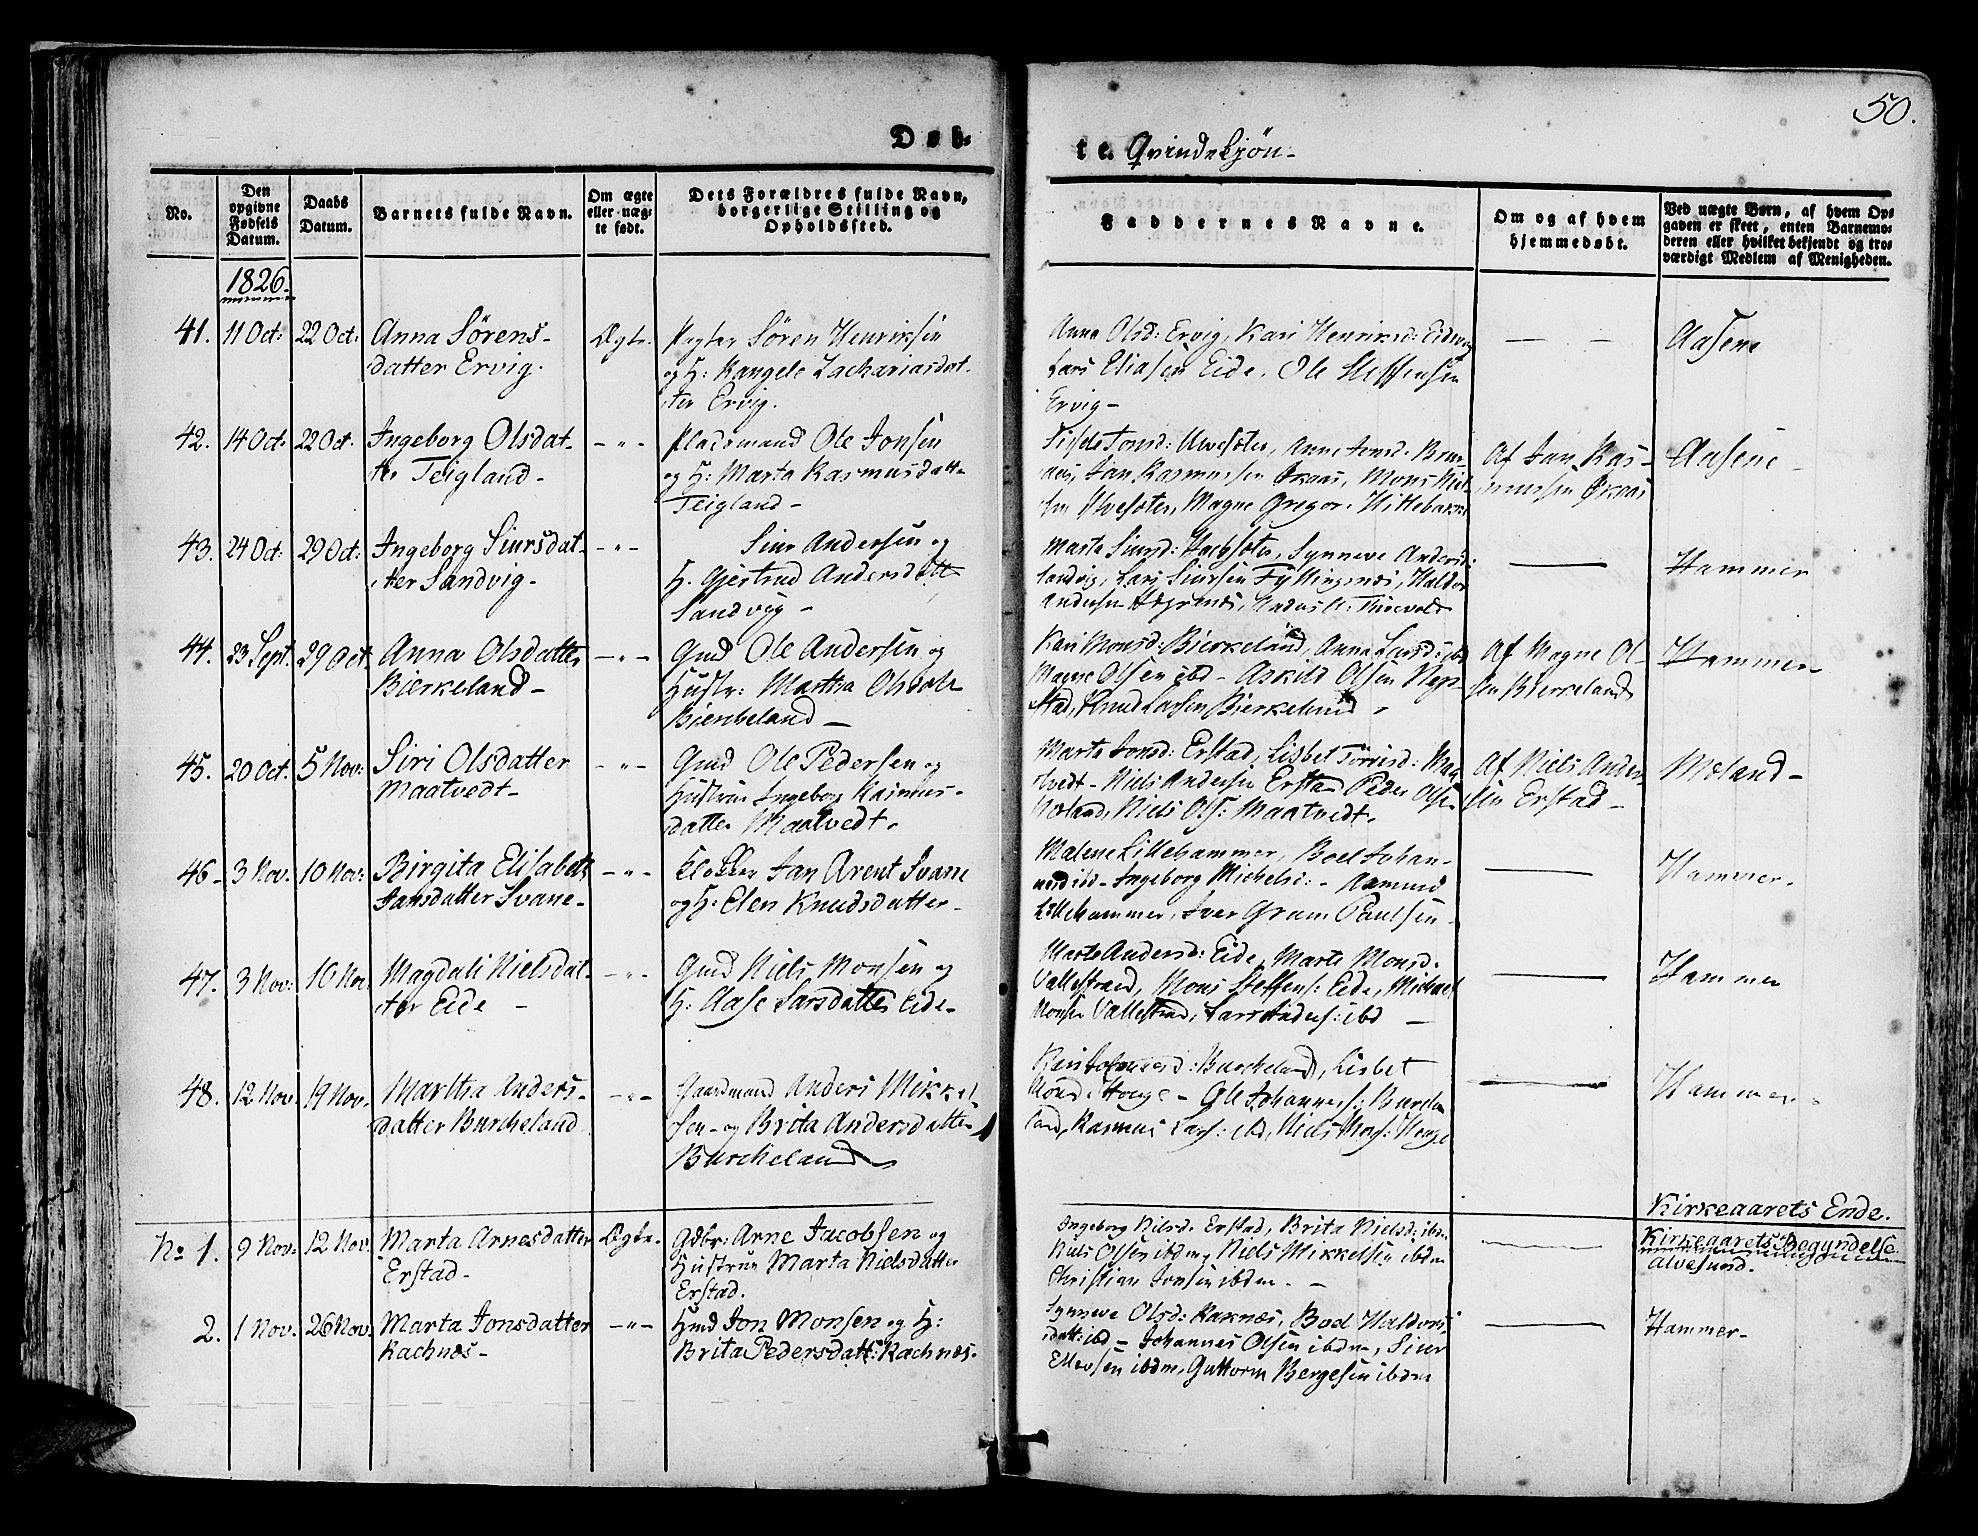 50.
Døb-
te. Qvindekjön-
No.
Den opgivne Fødsels Datum.
Daabs Datum.
Barnets fulde Navn.
Om ægte eller uægte født.
Dets Forældres fulde Navn, borgerlige Stilling og Opholdssted.
Faddernes Navne.
Om og af hvem hjemmedøbt.
Ved uægte Børn, af hvem Opgaven er skeet, enten Barnemoderen eller hvilket bekjendt og troværdigt Medlem af Menigheden.
1826.
41. 11 Oct: 22 Oct: Anna Sörens- Ægte. Søren Henriksen Anna Olsd: Ervig, Kari Henriksd: — — Aasene
datter Ervig. og H: Rangele Zachariasdat- Lars Eliasen Eide, Ole Steffensen
ter Ervig. Ervig-
42. 14 Oct: 22 Oct. Ingeborg Olsdat- -"- Pladsmand Ole Jonsen Af Jan Ras- Aasene-
ter Teigland- og H: Marta Rasmusdatte Jan Rasmussen Økaas, Mons mussen Økaas
Teigland- Magne Gregor:
43. 24 Oct: 29 Oct: Ingeborg Siursdat- -"- Siur Andersen og Marta Siursd: Synneve Andersd: — Hammer
ter Sandvig- H. Gjertrud Andersdatt Sandvig, Lars Siursen Fyllingsnes, Haldor
Sandvig- Andersen
44. 23 Sept. 29 Oct. Anna Olsdatter -"- Gmd Ole Andersen og Kari Monsd: Bierkeland, Anna Larsd: ibd Af Magne Ol- Hammer-
Bierkeland- Hustr: Martha Olsdatt Magne Olsen ibd- Askild Olsen sen Bierkeland
Bierkeland- Knud Larsen Bierkeland.
45. 20 Oct. 5 Nov: Siri Olsdatter -"- Gmd Ole Pedersen og Marta Jonsd: Erstad, Lisbet Torrisd: Maa- Af Niels Ander- Mæland-
Maatvedt- Hustrue Ingeborg Rasmus- tvedt- Niels Andersen Erstad Peder Olsen sen Erstad-
datter Maatvedt. Mæland, Niels Ols: Maatvedt.
46- 3 Nov. 10 Nov: Birgita Elisabeth -"- Klokker Jan Arent Svane Malene Lillehammer, Boel Johan- — Hammer.
Jansdatter Svane- og H: Elen Knudsdatter- nesd ibd- Ingeborg Michelsd:- Aamund
Lillehammer, Iver Gram Paulsen-
47. 3 Nov: 10 Nov Magdali Nielsdat- -"- Gmd Niels Monsen og Marta Andersd: Eide, Marte Monsd. — Hammer
ter Eide- H: Aase Larsdatter Eide- Vallestrand, Mons Steffens: Eide, Michael
Monsen Vallestrand, Lars Anders: ibd-
48. 12 Nov. 19 Nov. Martha Anders- -"- Gaardmand Anders Mikkel- Burcheland, Lisbet — Hammer-
datter Burcheland sen- og Brita Andersdatter Hauge- Ole Johannes: Burche-
Burcheland land, Rasmus Lars: ibd, Niels Mons: Hauge
Kirkeaarets Ende.
No 1. 9 Nov. 12 Nov. Marta Arnesdatter Ægte. Gdbr: Arne Jacobsen og Ingeborg Nielsd. Erstad, Brita Nielsd: ibdm — Kirkeaarets Begyndelse
Erstad- Hustrue Marta Nielsdatter Niels Olsen ibdm, Niels Mikkelsen ibdm Alvesund.
Erstad. Christian Jonsen ibdm.-
2. 1 Nov. 26 Nov. Marta Jonsdatter -"- Hmd Jon Monsen og H: Synneve Olsd: Raknæs, Boel Haldors- — Hammer-
Rachnæs- Brita Pedersdatt: Rachnæs. datt: ibd- Johannes Olsen ibdm, Siur
Ellevsen ibdm, Guttorm Bergesen ibdm